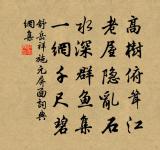 高樹俯江
老屋隱亂石
水深群魚集
一網千尺碧
舒岳祥施元屏面詞典
網集